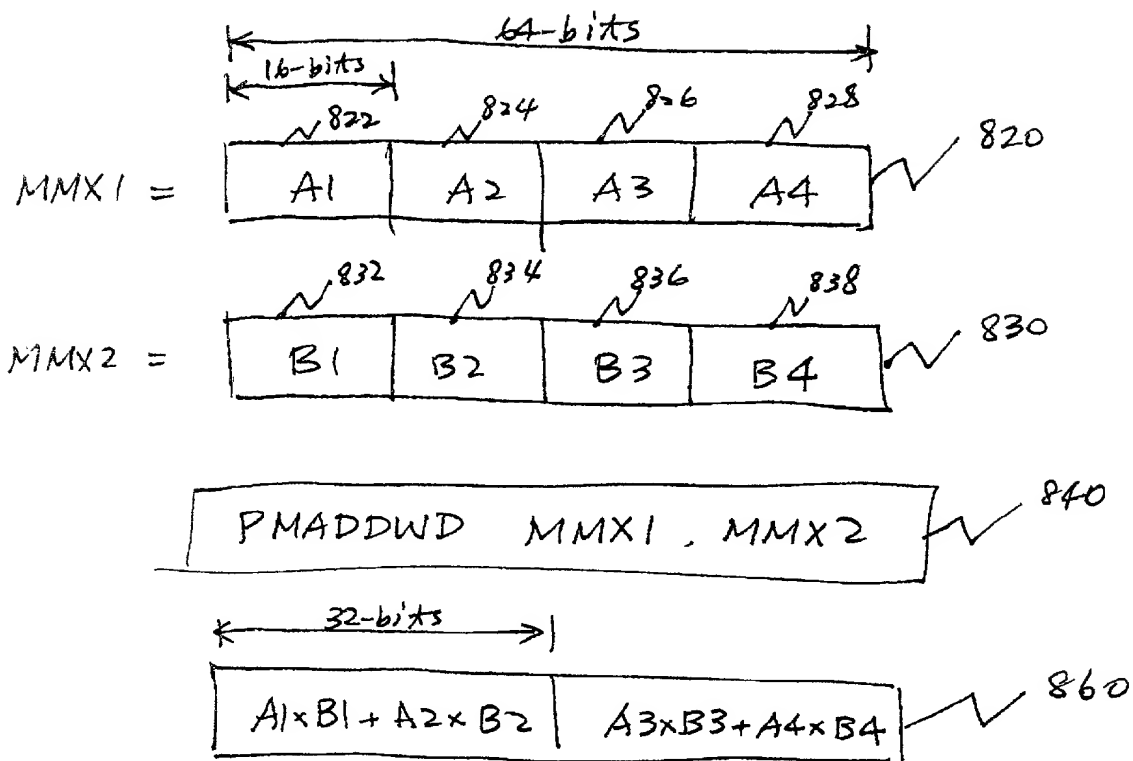 64-bits
16-bits
822 824 826 828
820
MMX1 = A1 A2 A3 A4
832 834 836 838
830
MMX2 = B1 B2 B3 B4
840
PMADDWD MMX1, MMX2
32-bits
860
A1×B1+A2×B2 A3×B3+A4×B4